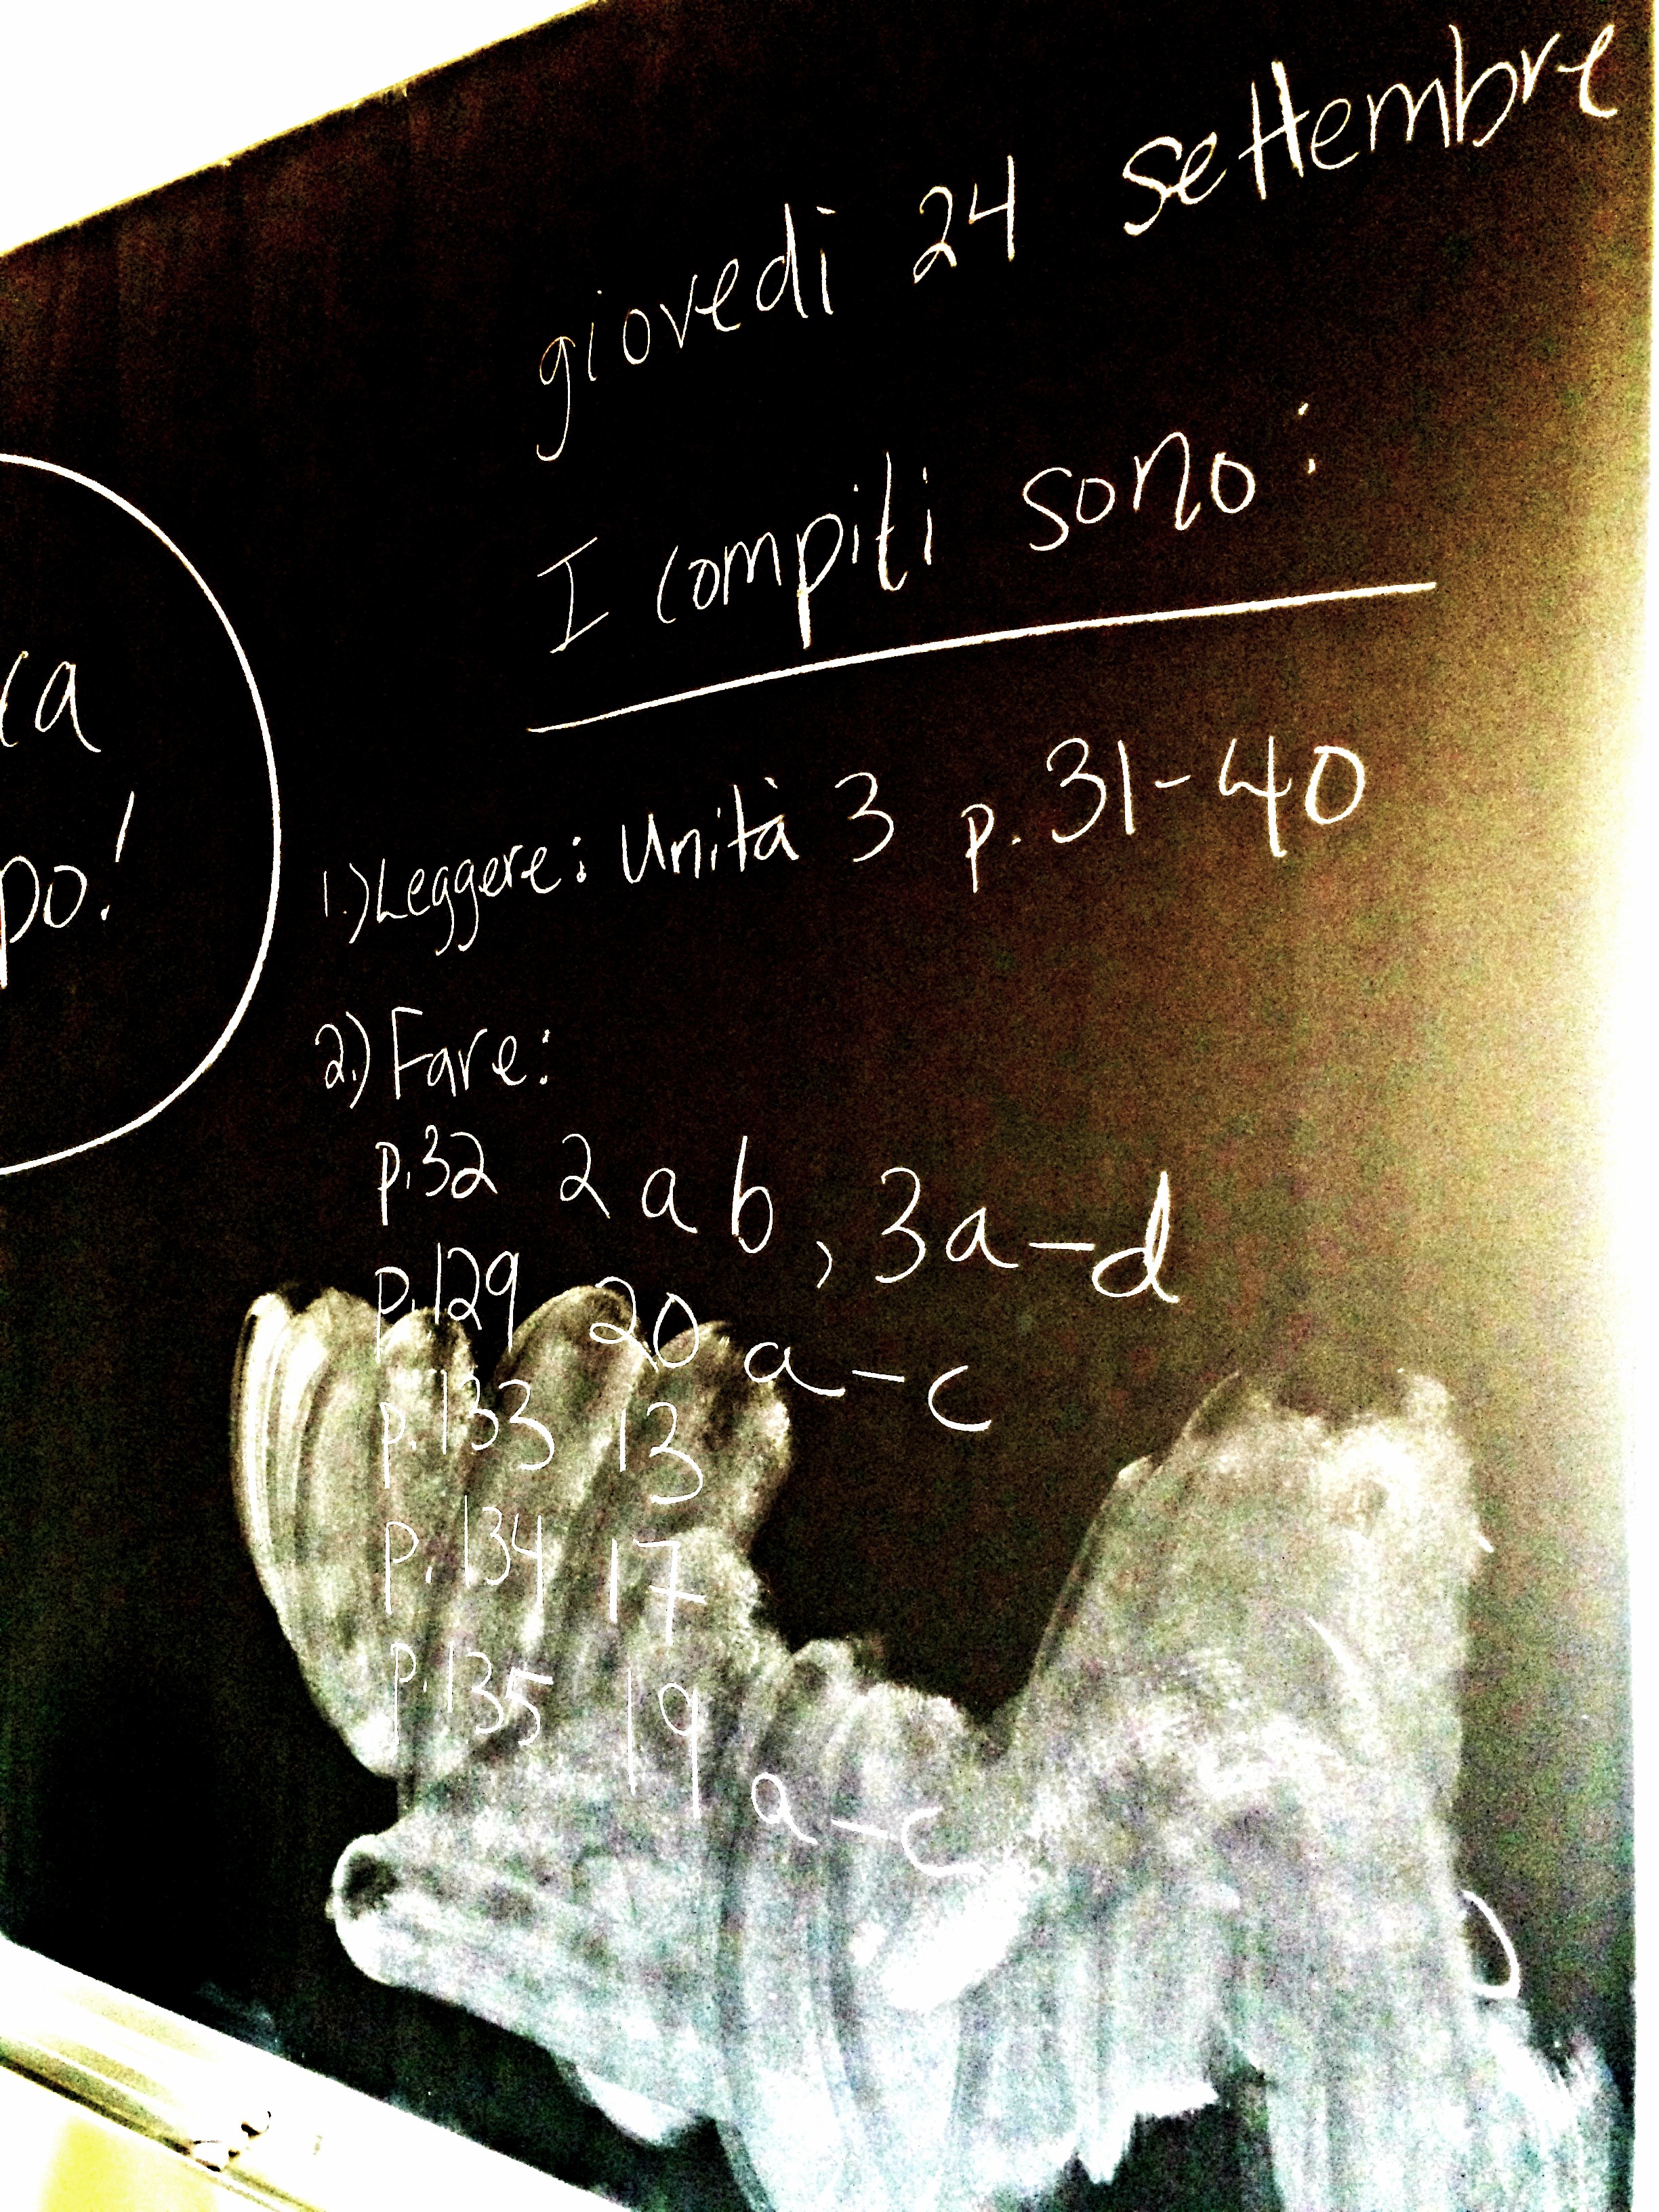 giovedì 24 settembre
I compiti sono:
ca
po!
1.) Leggere: Unità 3 p. 31-40
2.) Fare:
p.32 2 a b, 3a-d
p.129 20 a-c
p.133 13
p.134 17
p.135 19 a-c